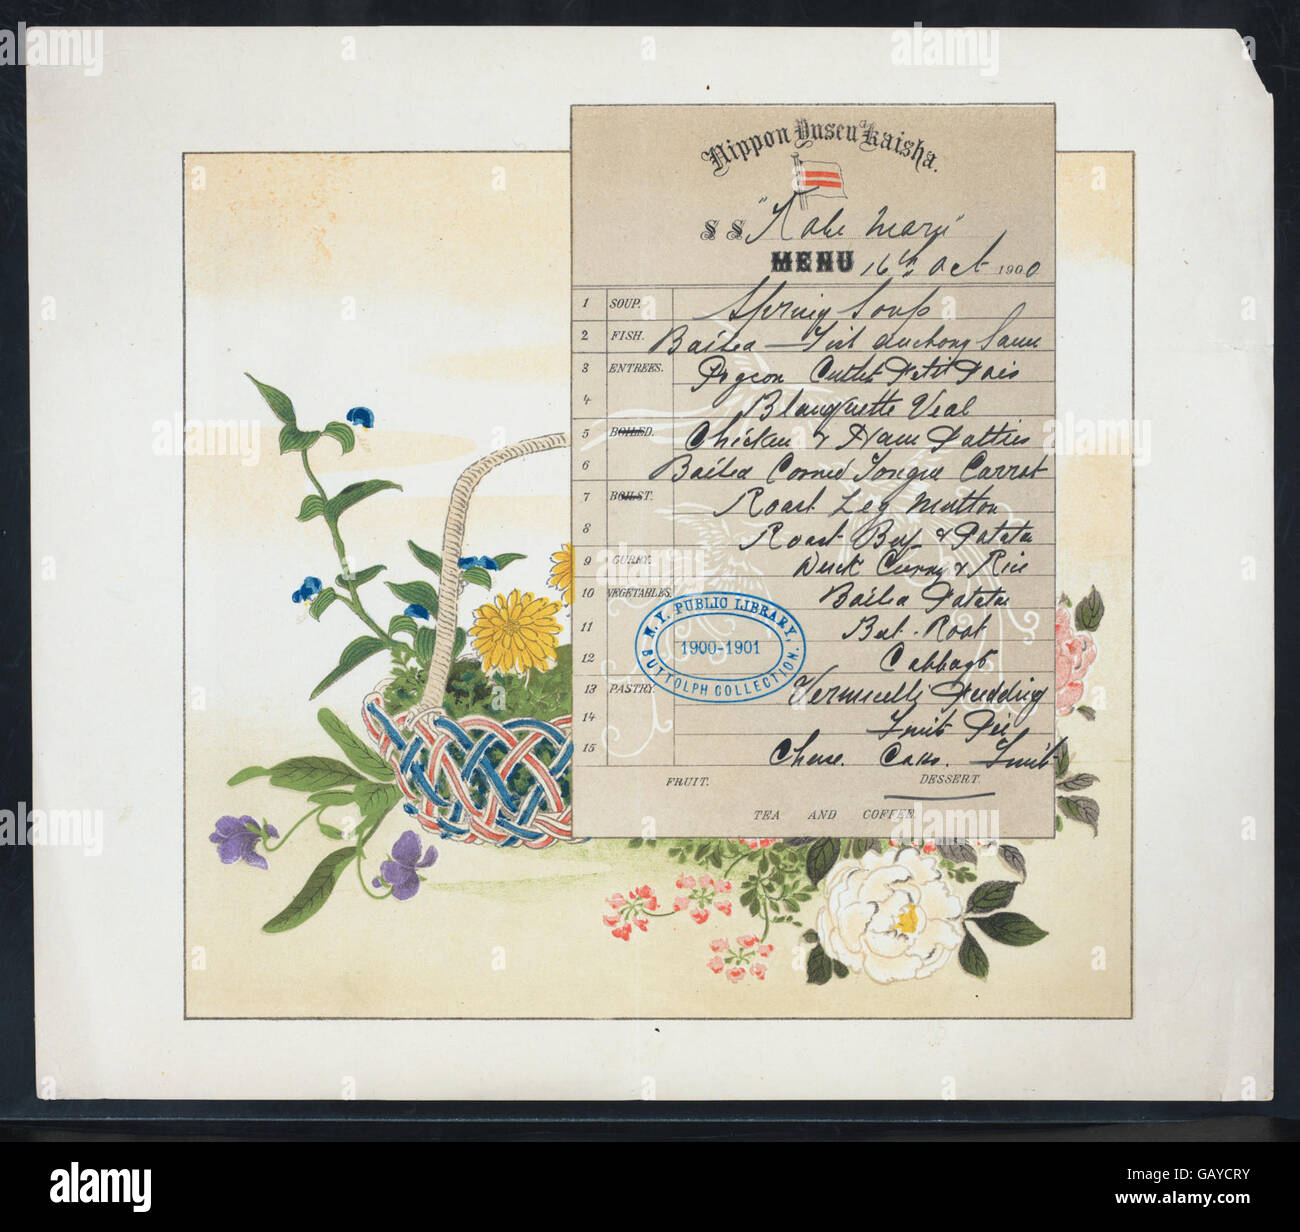 Nippon Yusen Kaisha.
SS "Kobe Maru"
MENU 16th Oct 1900
1 SOUP. Spring Soup
2 FISH. Boiled Fish Anchovy Sauce
3 ENTREES. Pigeon Cutlet Petit Pois
4 Blanquette Veal
5 BOILED. Chicken & Ham Patties
6 Boiled Corned Tongue Carrot
7 Roast Leg Mutton
8 Roast Beef & Potato
9 CURRY. Duck Curry & Rice
10 VEGETABLES. Boiled Potato
11 Beet-Root
12 Cabbage
13 PASTRY. Vermicelli Pudding
14 Fruit Pie
15 Cheese. Cake. Fruit
FRUIT. DESSERT.
TEA AND COFFEE.
N.Y. PUBLIC LIBRARY,
1900-1901
BUTTOLPH COLLECTION.
alamy stock photo
GAYCRY
www.alamy.com